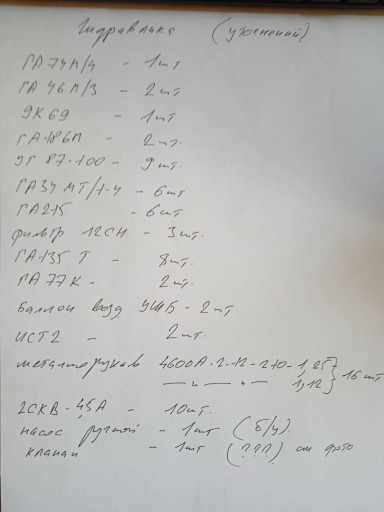 Гидравлика (уточнений)
ГА 74М/4 - 1 шт
ГА 46М/3 - 2 шт
ЭК 69 - 1 шт
ГА-186М - 2 шт.
УГ 97-100 - 9 шт.
ГА34 МТ/1-4 - 6 шт
ГА215 - 6 шт
фильтр 12СН - 3 шт.
ГА-135 Т - 8 шт.
ГА 77К - 2 шт.
Баллон возд УШБ - 2 шт
ИСТ2 - 2 шт.
металлорукав 4600А-2-12-210-1,25 } 16 шт
—〃—〃— 1,12
2СКВ-4,5А - 10 шт.
насос ручной - 1 шт (б/у).
клапан - 1 шт (???) см фото